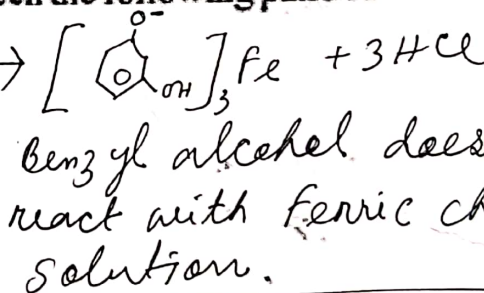 → [ O⁻ OH ]₃ Fe + 3HCl
Benzyl alcohol does
react with ferric ch
solution.